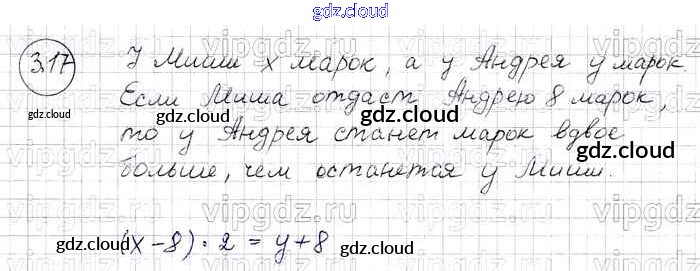 gdz.cloud
3.17 У Миши x марок, а у Андрея y марок.
Если Миша отдаст Андрею 8 марок,
gdz.cloud
gdz.cloud
то у Андрея станет марок вдвое
gdz.cloud
больше, чем останется у Миши.
(x-8):2 = y+8
gdz.cloud
gdz.cloud